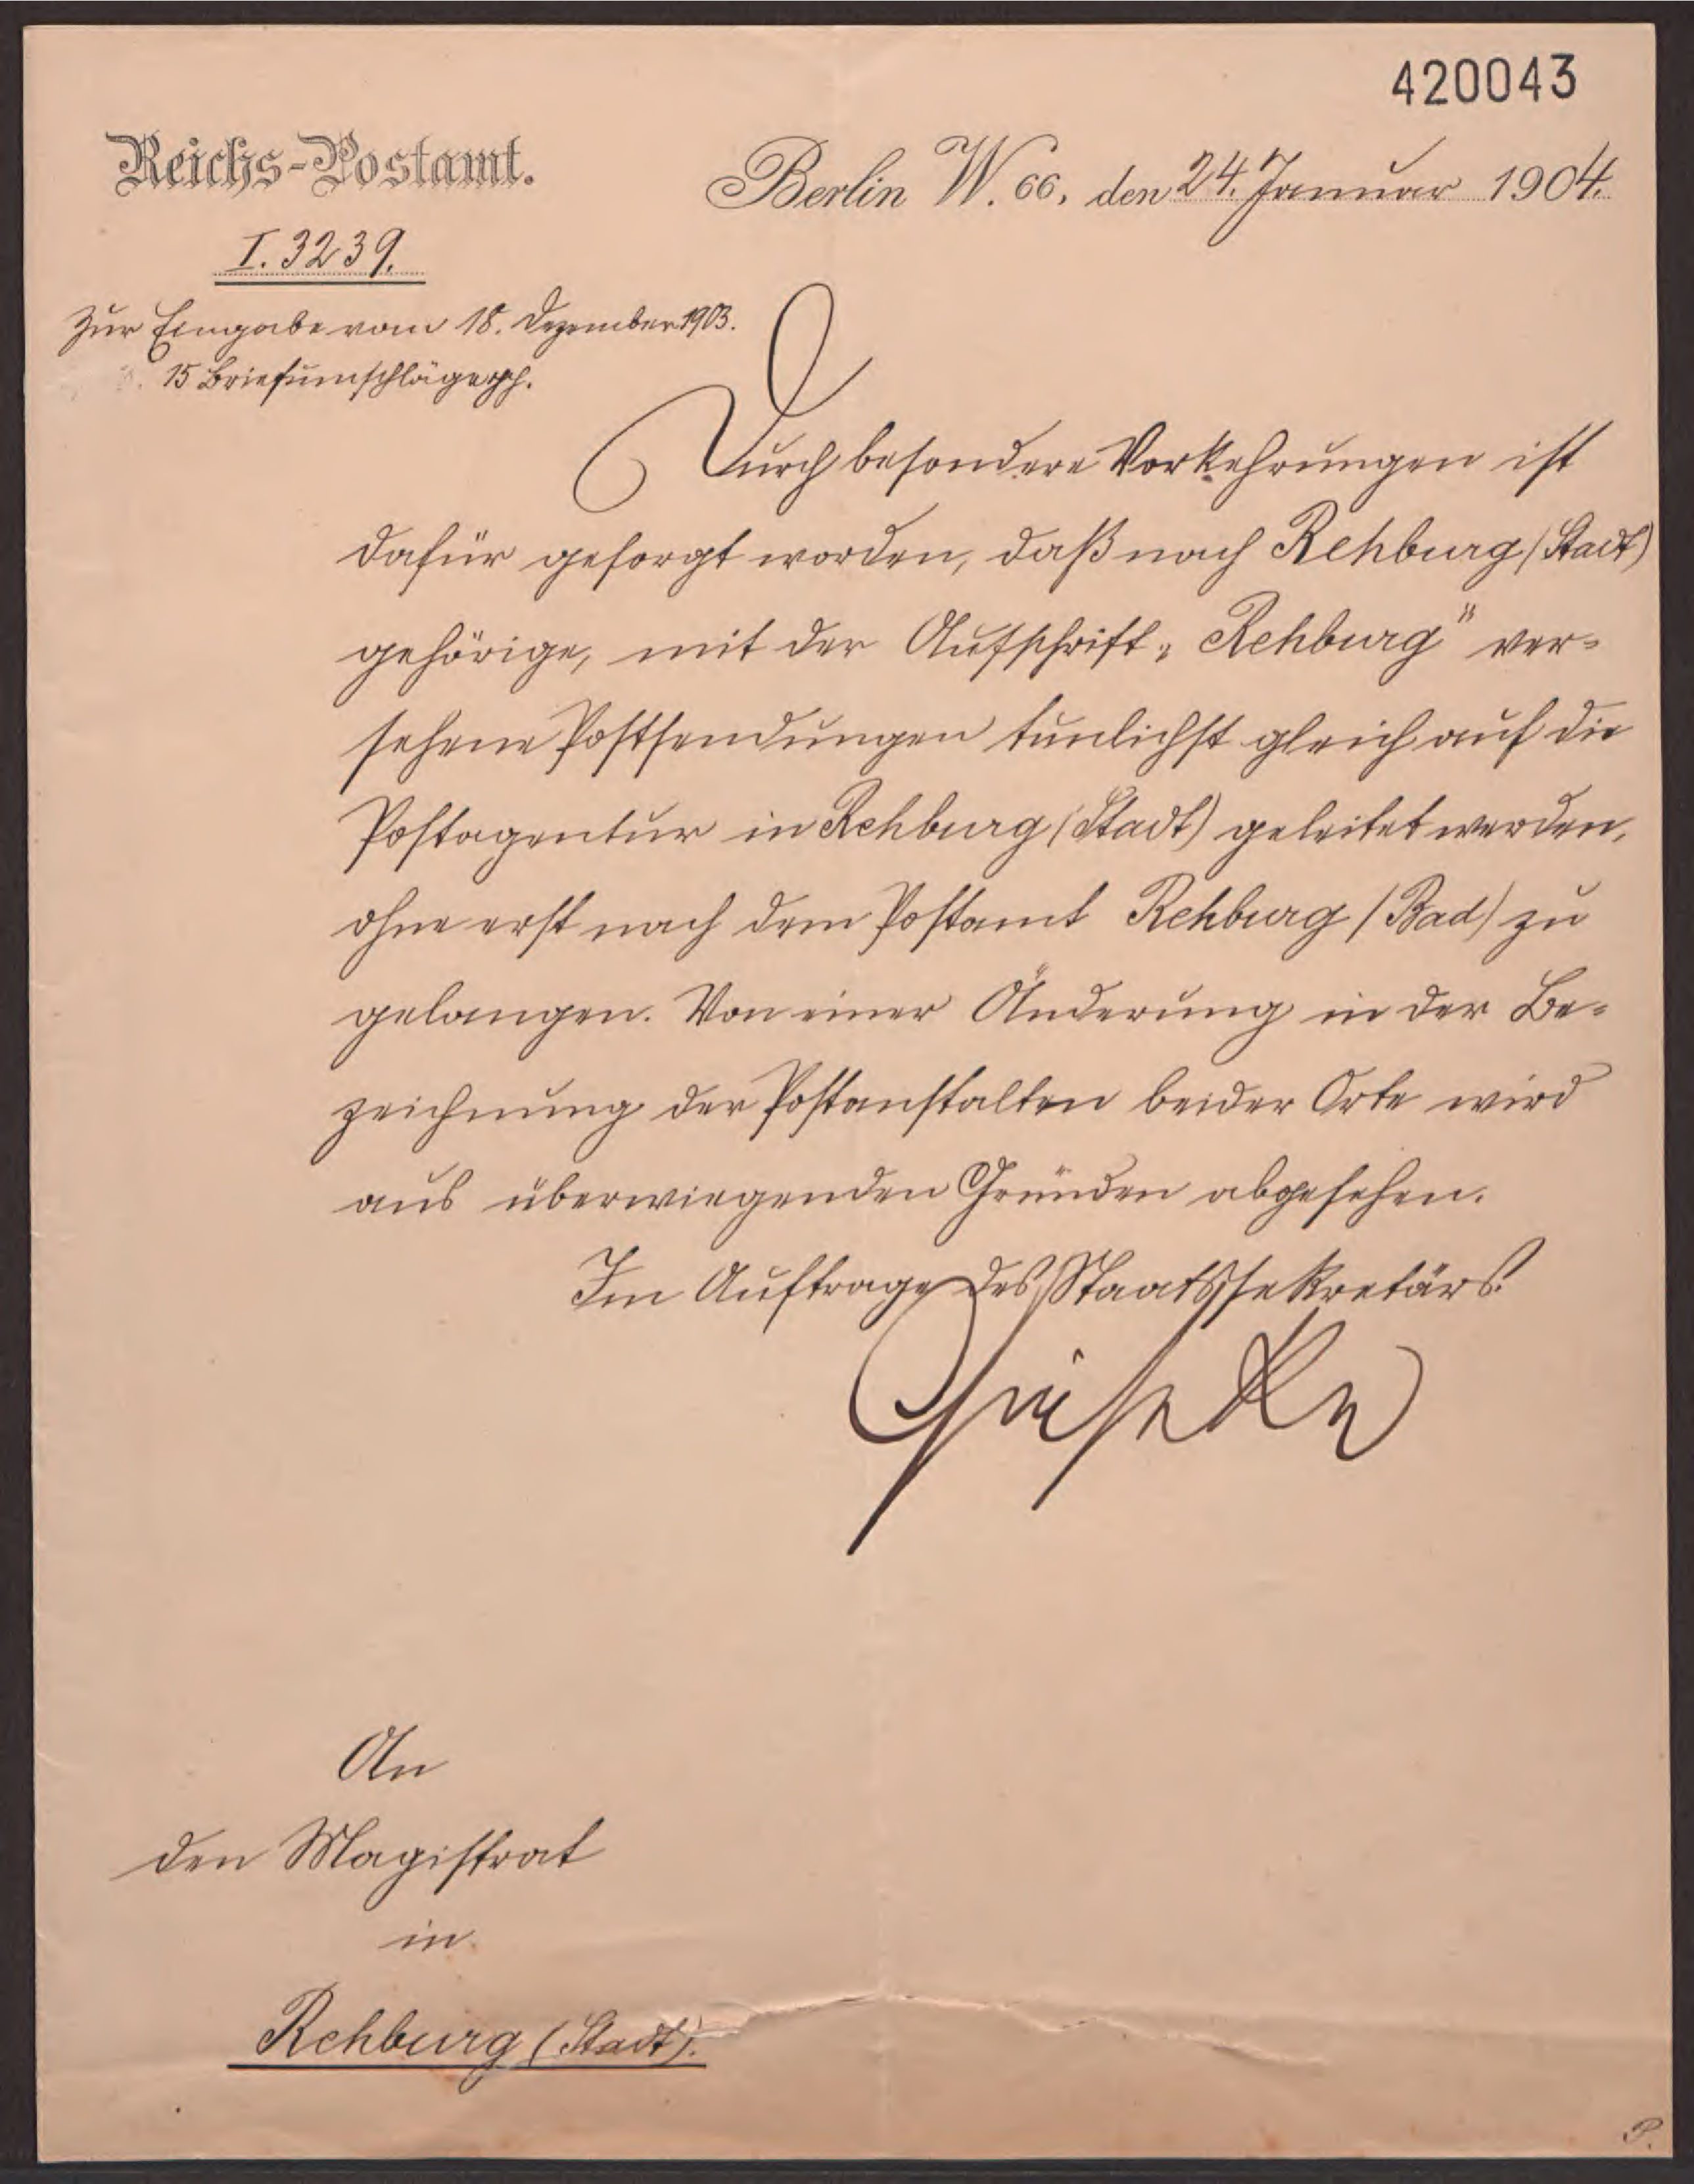 420043
Reichs-Postamt.
Berlin W. 66, den 24. Januar 1904.
I. 3239.
Zur Eingabe vom 18. Dezember 1903.
15 Briefumschläge
Durch besondere Vorkehrungen ist
dafür gesorgt worden, daß nach Rehburg (Stadt)
gehörige, mit der Aufschrift „Rehburg" ver-
sehene Postsendungen tunlichst gleich auf die
Postagentur in Rehburg (Stadt) geleitet werden,
ohne erst nach dem Postamt Rehburg (Bad) zu
gelangen. Von einer Änderung in der Be-
zeichnung der Postanstalten beider Orte wird
aus überwiegenden Gründen abgesehen.
Im Auftrage des Staatssekretärs
An
den Magistrat
in
Rehburg (Stadt).
P.